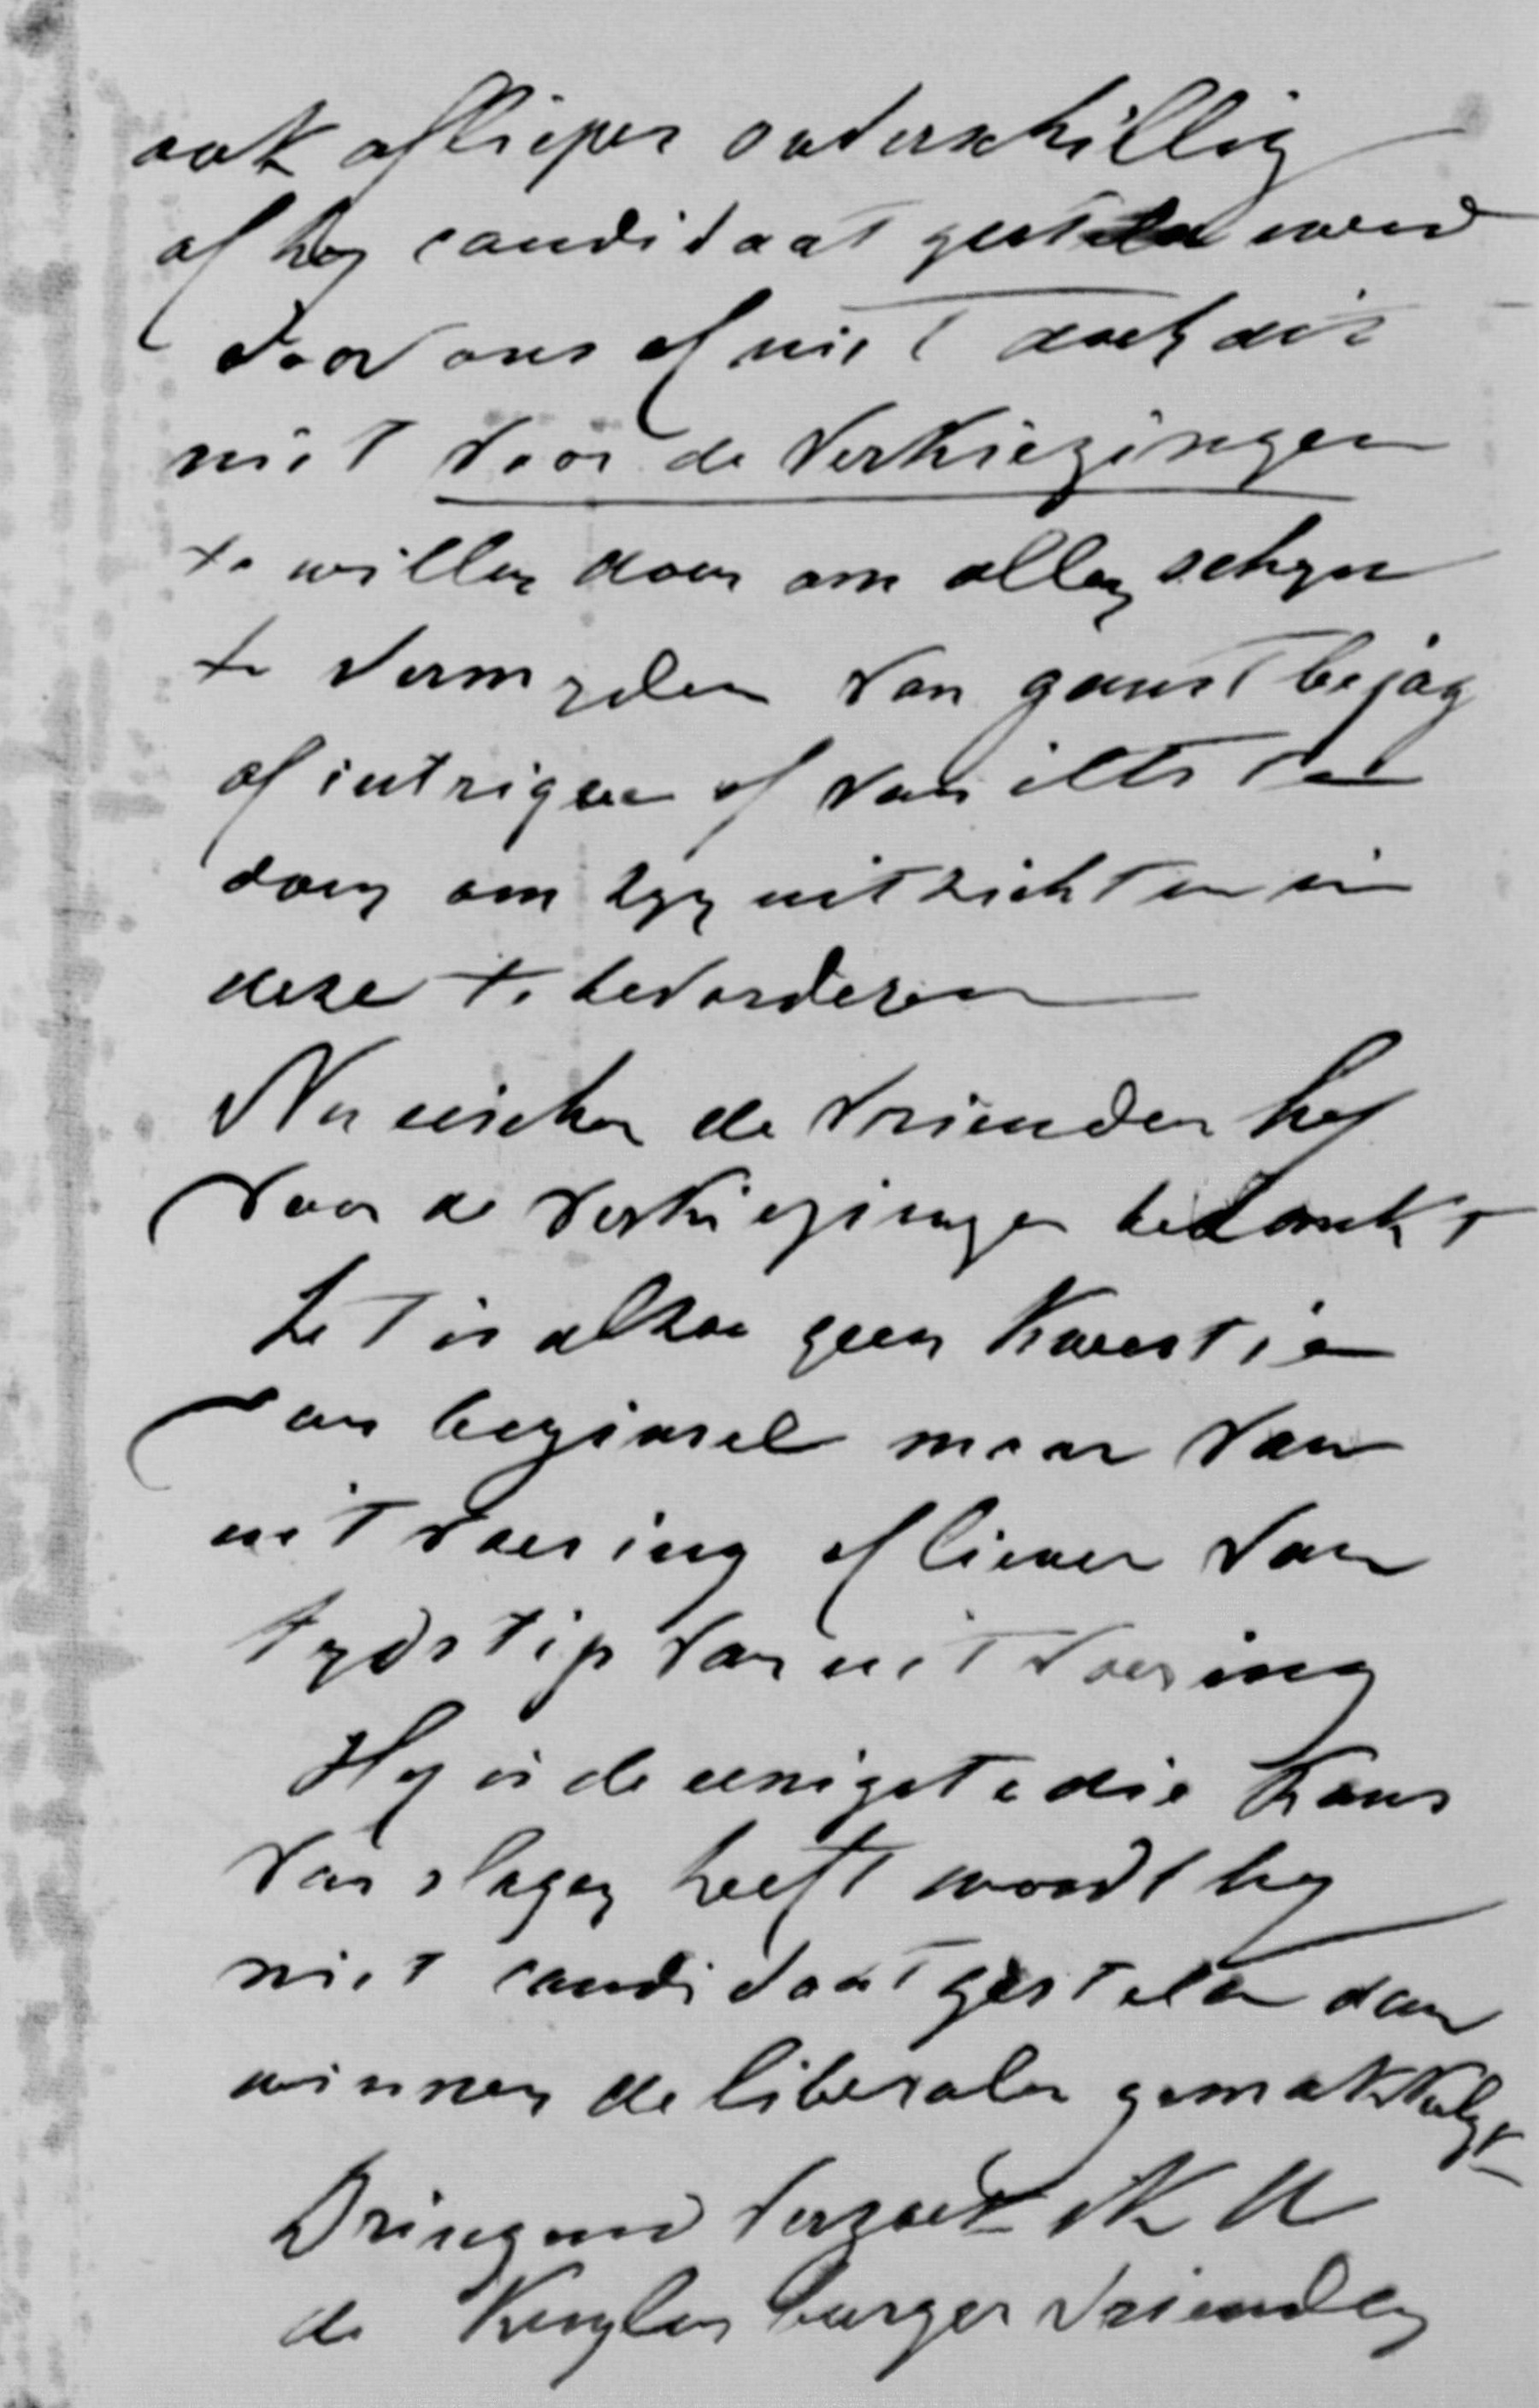 ook afliepen onverschillig
of hy candidaat gesteld werd
door ons of niet doch dit
niet voor de verkiezingen
te willen doen om allen schyn
te vermyden van gunstbejag
of intrigen of van iets te
doen om zyn uitzichten in
deze te bevorderen
Nu eischen de vrienden hy
voor de verkiezingen bedankt
het is alzoo geen kwestie
van beginsel maar van
uitvoering of liever van
tydstip van uitvoering
Hy is de eenigste die kans
van slagen heeft wordt hy
niet candidaat gesteld dan
winnen de liberalen gemakkelyk
Dringend verzoek ik U
de Kuylenburger vrienden